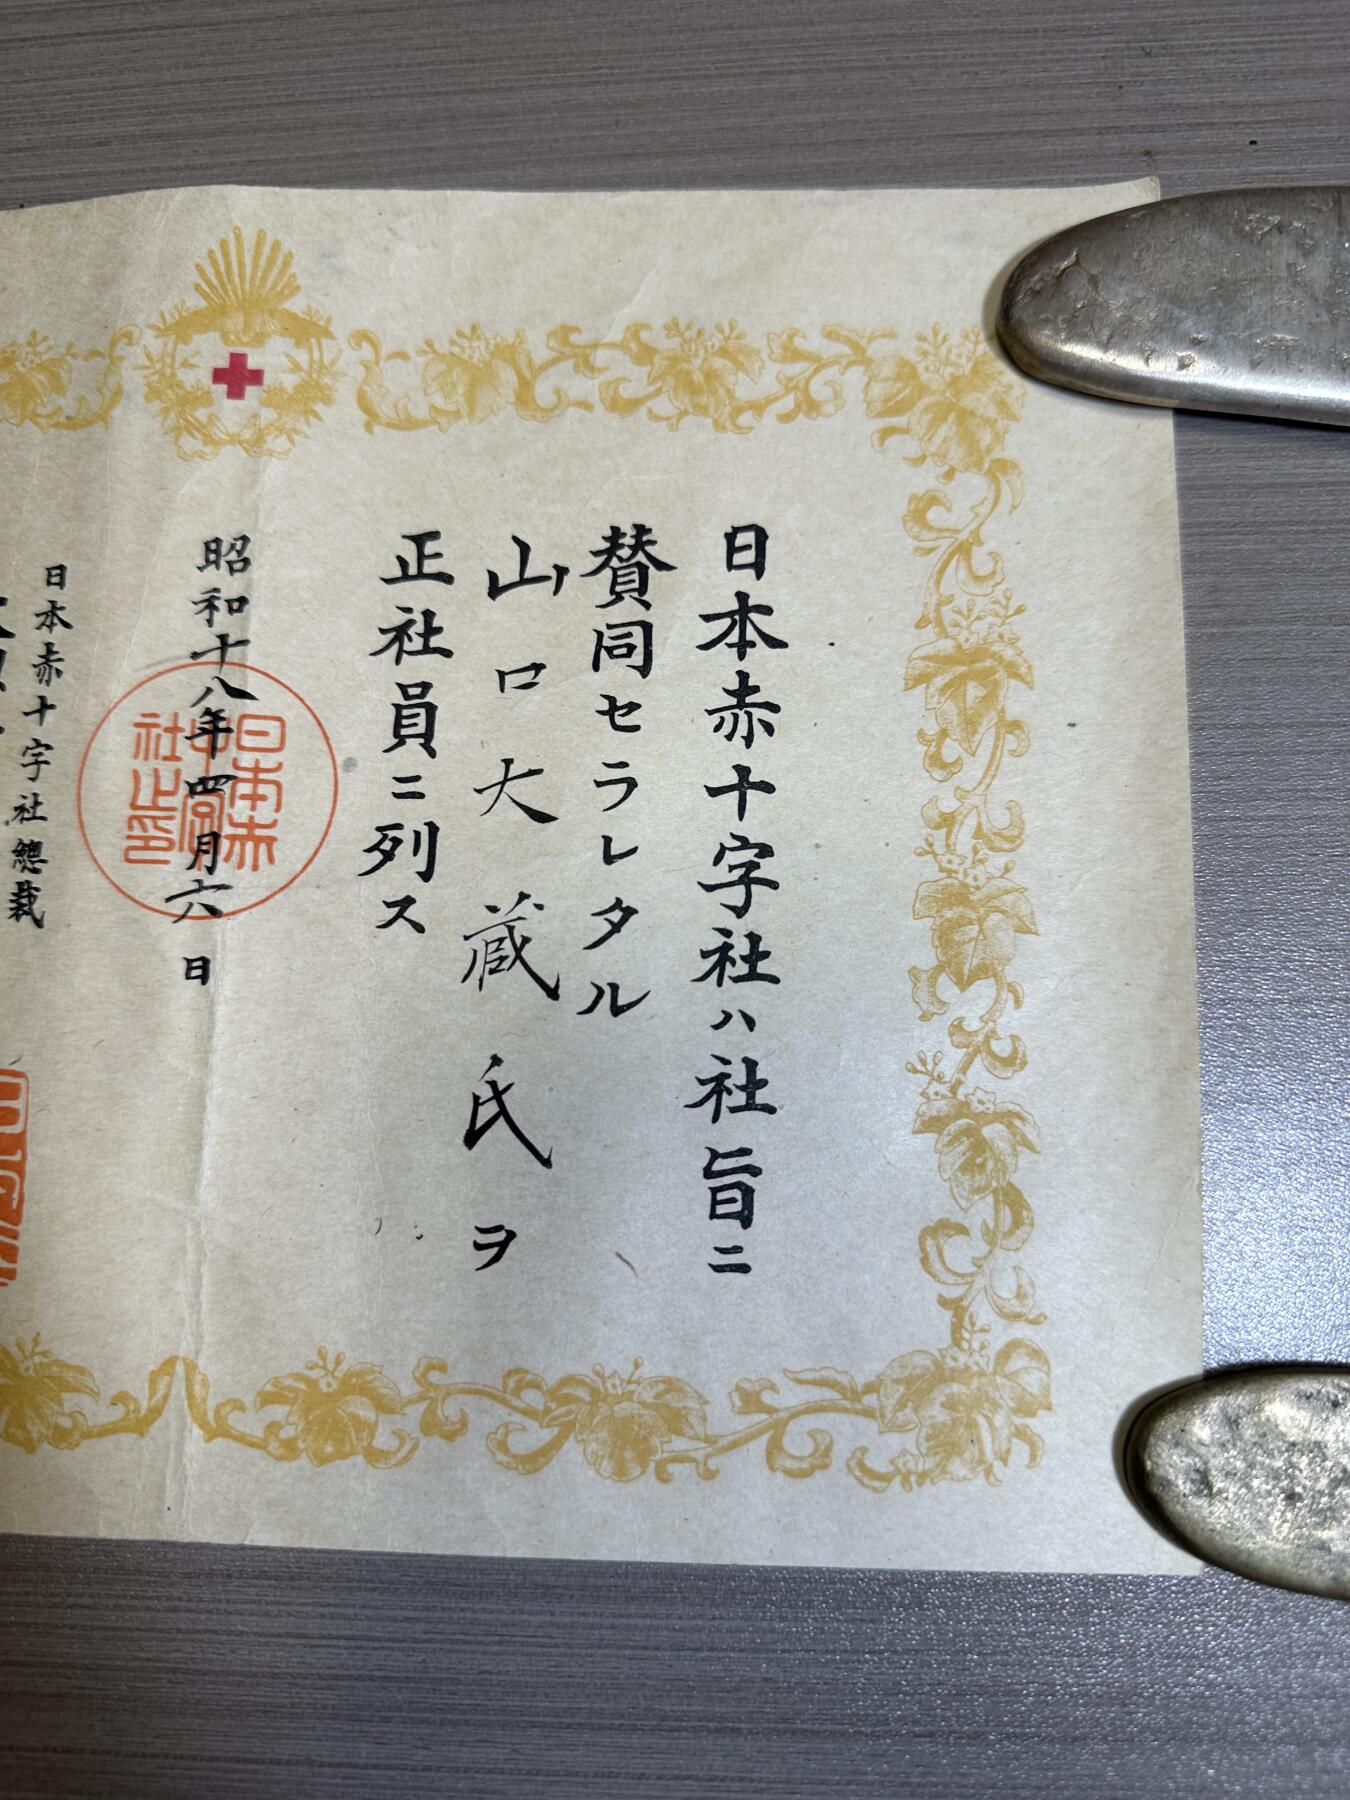 日本赤十字社ハ社旨ニ
賛同セラレタル
山口大蔵氏ヲ
正社員ニ列ス
昭和十八年四月六日
日本赤十字社總裁